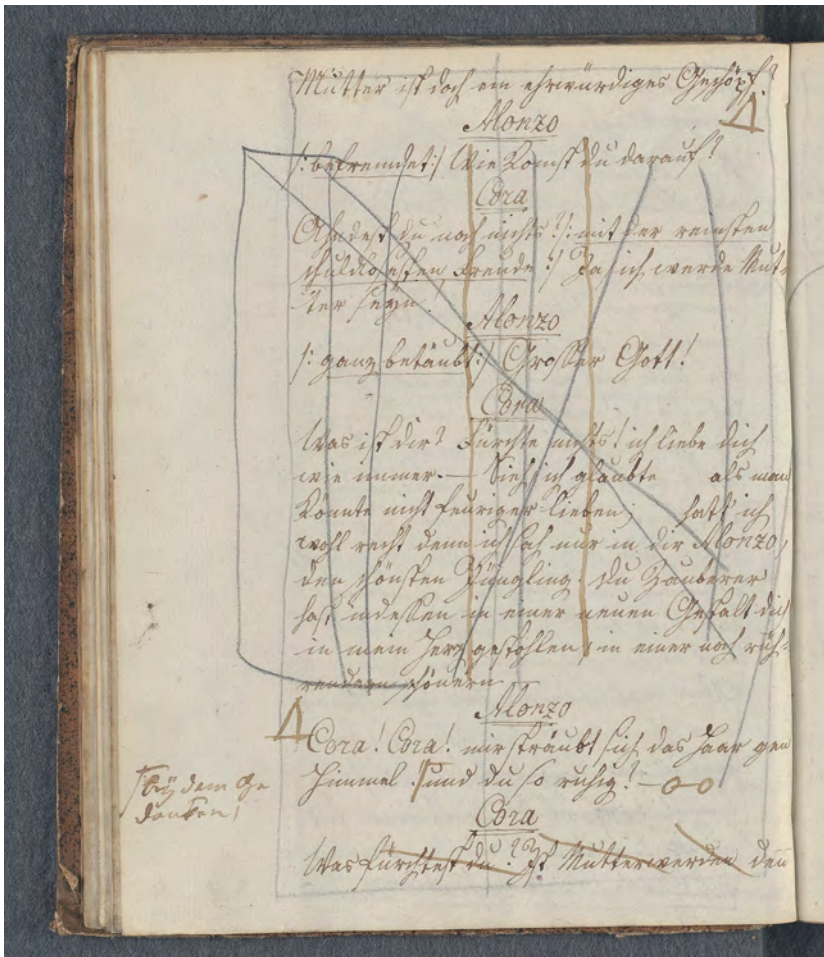 Mutter ist doch ein ehrwürdiges Geschöpf?
Alonzo
/: befremdet :/ Wie komst du darauf?
Cora
Ahndest du noch nichts? /: mit der reinsten
schuldlosesten Freude :/ Ja ich werde Mut-
ter seyn!
Alonzo
/: ganz betäubt :/ Grosser Gott!
Cora
Was ist dir? Fürchte nichts! ich liebe dich
wie immer. — Sieh ich glaubte als man
könnte nicht feuriger lieben; hatt' ich
wohl recht denn ich sah nur in dir Alonzo,
den schönsten Jüngling. Du Zauberer
hast indessen in einer neuen Gestalt dich
in mein Herz gestohlen, in einer noch rüh-
rendern schönern
Alonzo
Cora! Cora! mir sträubt sich das Haar gen
Himmel und du so ruhig? —
bey dem Ge
danken
Cora
Was fürchtest du? Ist Mutterwerden den